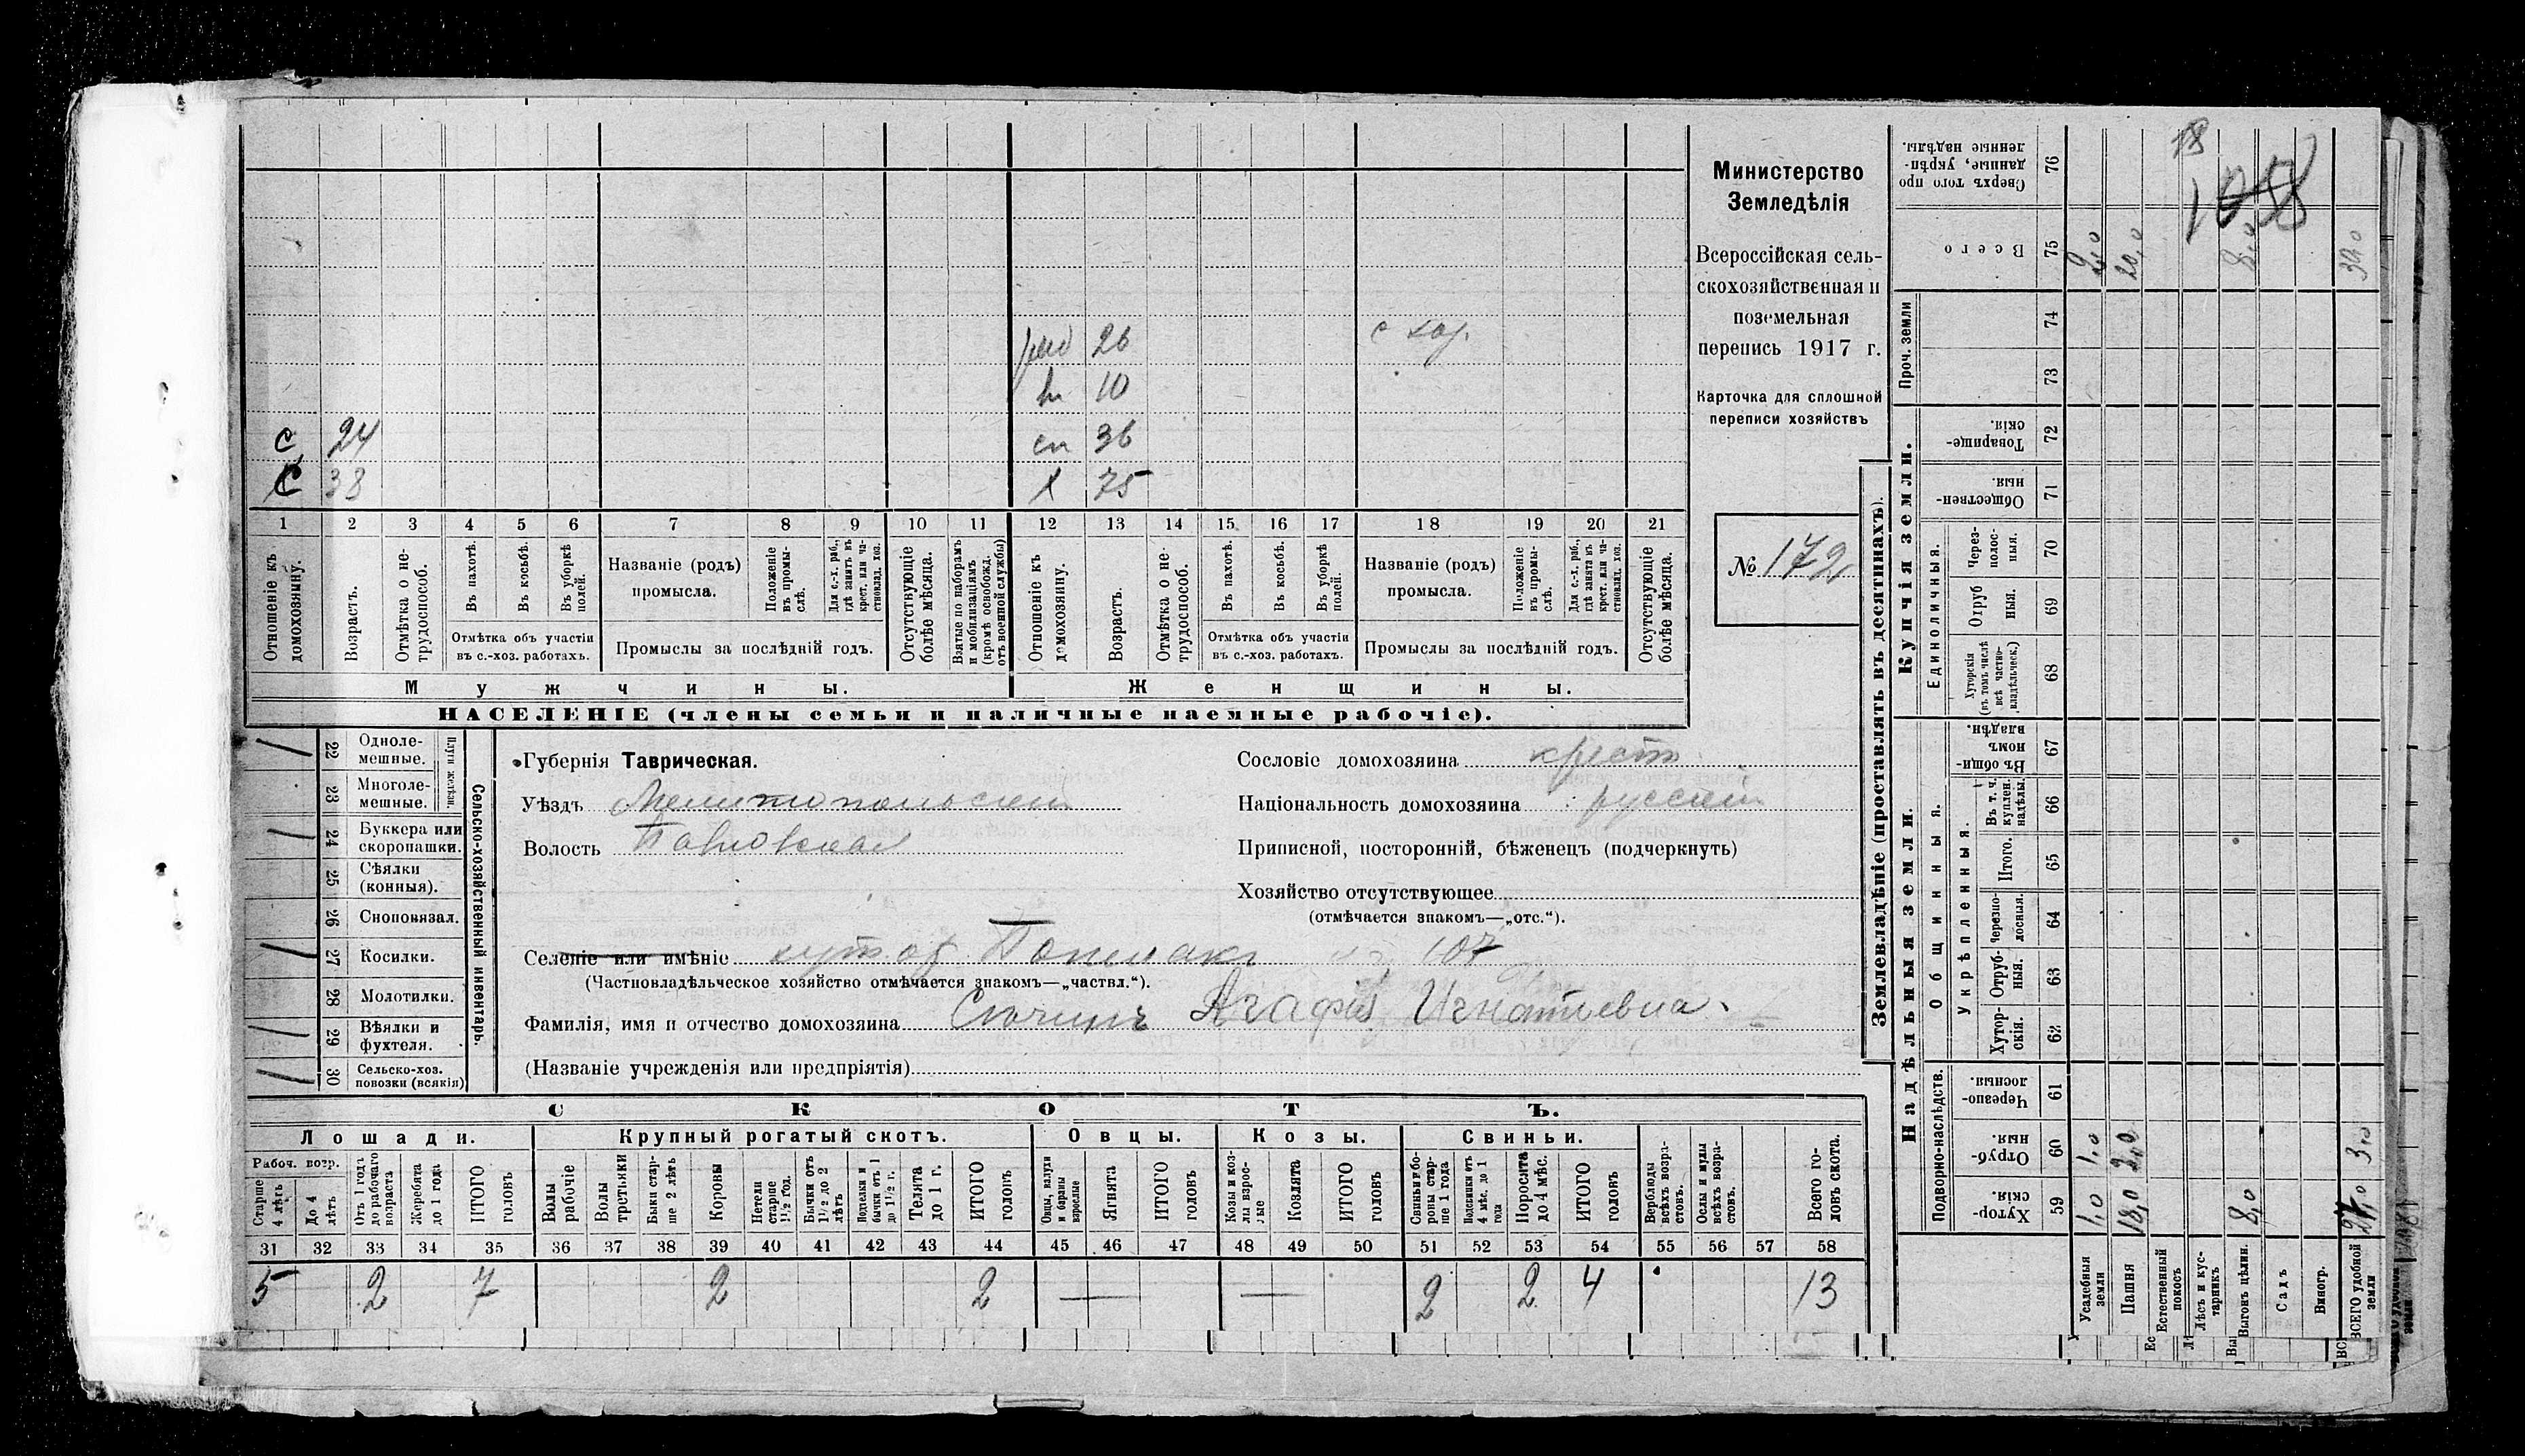 Министерство
Земледѣлія
Всероссійская сель-
скохозяйственная и
поземельная
перепись 1917 г.
Карточка для сплошной
переписи хозяйствъ
№ 172
26
10
с 24 36
С 38 75
1 2 3 4 5 6 7 8 9 10 11 12 13 14 15 16 17 18 19 20 21
Отношеніе къ домохозяину.
Возрастъ.
Отмѣтка о не-трудоспособ.
Въ пахотѣ.
Въ косьбѣ.
Въ уборкѣ полей.
Отмѣтка объ участіи
въ с.-хоз. работахъ.
Названіе (родъ)
промысла.
Положеніе въ промы-слѣ.
Для с.-х. раб., гдѣ занятъ въ крест. или ча-стновлад. хоз.
Промыслы за послѣдній годъ.
Отсутствующіе болѣе мѣсяца.
Взятые по наборамъ и мобилизаціямъ (кромѣ освобожд. отъ военной службы)
Отношеніе къ домохозяину.
Возрастъ.
Отмѣтка о не-трудоспособ.
Въ пахотѣ.
Въ косьбѣ.
Въ уборкѣ полей.
Отмѣтка объ участіи
въ с.-хоз. работахъ.
Названіе (родъ)
промысла.
Положеніе въ промы-слѣ.
Для с.-х. раб., гдѣ занята въ крест. или ча-стновлад. хоз.
Промыслы за послѣдній годъ.
Отсутствующіе болѣе мѣсяца.
Мужчины.
Женщины.
НАСЕЛЕНІЕ (члены семьи и наличные наемные рабочіе).
Сельско-хозяйственный инвентарь.
Плуги желѣзн.
22 Одноле-мешные.
23 Многоле-мешные.
24 Буккера или скоропашки.
25 Сѣялки (конныя).
26 Сноповязал.
27 Косилки.
28 Молотилки.
29 Вѣялки и фухтеля.
30 Сельско-хоз. повозки (всякія)
Губернія Таврическая.
Уѣздъ Мелитопольскій
Волость Павловская
Сословіе домохозяина крест.
Національность домохозяина русскій
Приписной, посторонній, бѣженецъ (подчеркнуть)
Хозяйство отсутствующее
(отмѣчается знакомъ—„отс.“).
Селеніе или имѣніе хутор 107
(Частновладѣльческое хозяйство отмѣчается знакомъ—„частвл.“).
Фамилія, имя и отчество домохозяина Агафія Игнатьевна.
(Названіе учрежденія или предпріятія)
СКОТЪ.
Лошади.
Крупный рогатый скотъ.
Овцы.
Козы.
Свиньи.
Рабоч. возр.
Старше 4 лѣтъ
До 4 лѣтъ
Отъ 1 годъ до рабочаго возраста
Жеребята до 1 года
ИТОГО головъ
Волы рабочіе
Волы третьяки
Быки стар-ше 2 лѣтъ
Коровы
Нетели старше 1 1/2 год.
Бычки отъ 1 1/2 до 2 лѣтъ
Подтелки и бычки отъ 1 до 1 1/2 г.
Телята до 1 г.
ИТОГО головъ
Овцы, валухи и бараны взрослые
Ягнята
ИТОГО головъ
Козы и коз-лы взрос-лые
Козлята
ИТОГО головъ
Свиньи и бо-ровы стар-ше 1 года
Подсвинки отъ 4 мѣс. до 1 года
Поросята до 4 мѣс.
ИТОГО головъ
Верблюды всѣхъ возра-стовъ.
Ослы и мулы всѣхъ возра-стовъ.
Всего го-ловъ скота.
31 32 33 34 35 36 37 38 39 40 41 42 43 44 45 46 47 48 49 50 51 52 53 54 55 56 57 58
5 2 7 2 2 — — 2 2 4 13
Землевладѣніе (проставлять въ десятинахъ).
Надѣльныя земли.
Купчія земли.
Проч. земли
Подворно-наслѣдств.
Общинныя.
Укрѣпленныя.
Единоличныя.
59 Хутор-скія
60 Отруб-ныя.
61 Черезпо-лосныя.
62 Хутор-скія.
63 Отруб-ныя.
64 Черезпо-лосныя.
65 Итого.
66 Въ т. ч. куплен. надѣлы
67 Въ общи-номъ владѣн.
68 Хуторскія (въ томъ числѣ всѣ частно-владѣльческ.)
69 Отруб ныя.
70 Через-полос-ныя.
71 Обществен-ныя.
72 Товарище-скія.
73
74
75 Всего
76 Сверхъ того про данные, укрѣп-ленные надѣлы.
Усадебныя земли 1,0 1,0 2,0
Пашня 18,0 2,0 20,0
Естественный покосъ
Лѣсъ и кус-тарникъ
Выгонъ цѣлин. 8,0 8,0
Садъ
Виногр.
ВСЕГО удобной земли 27,0 3,0 30,0
18
1058